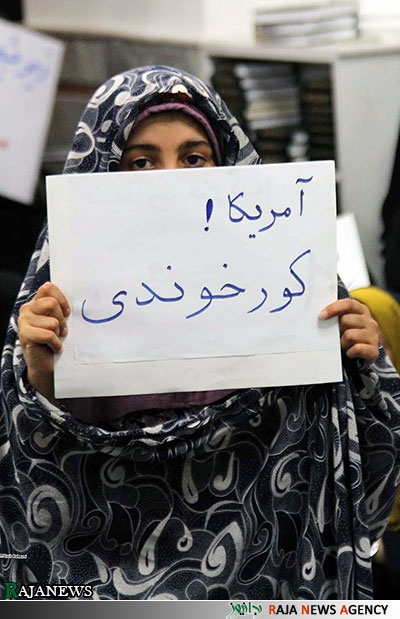 آمریکا !
کور خوندی
RAJANEWS
RAJA NEWS AGENCY